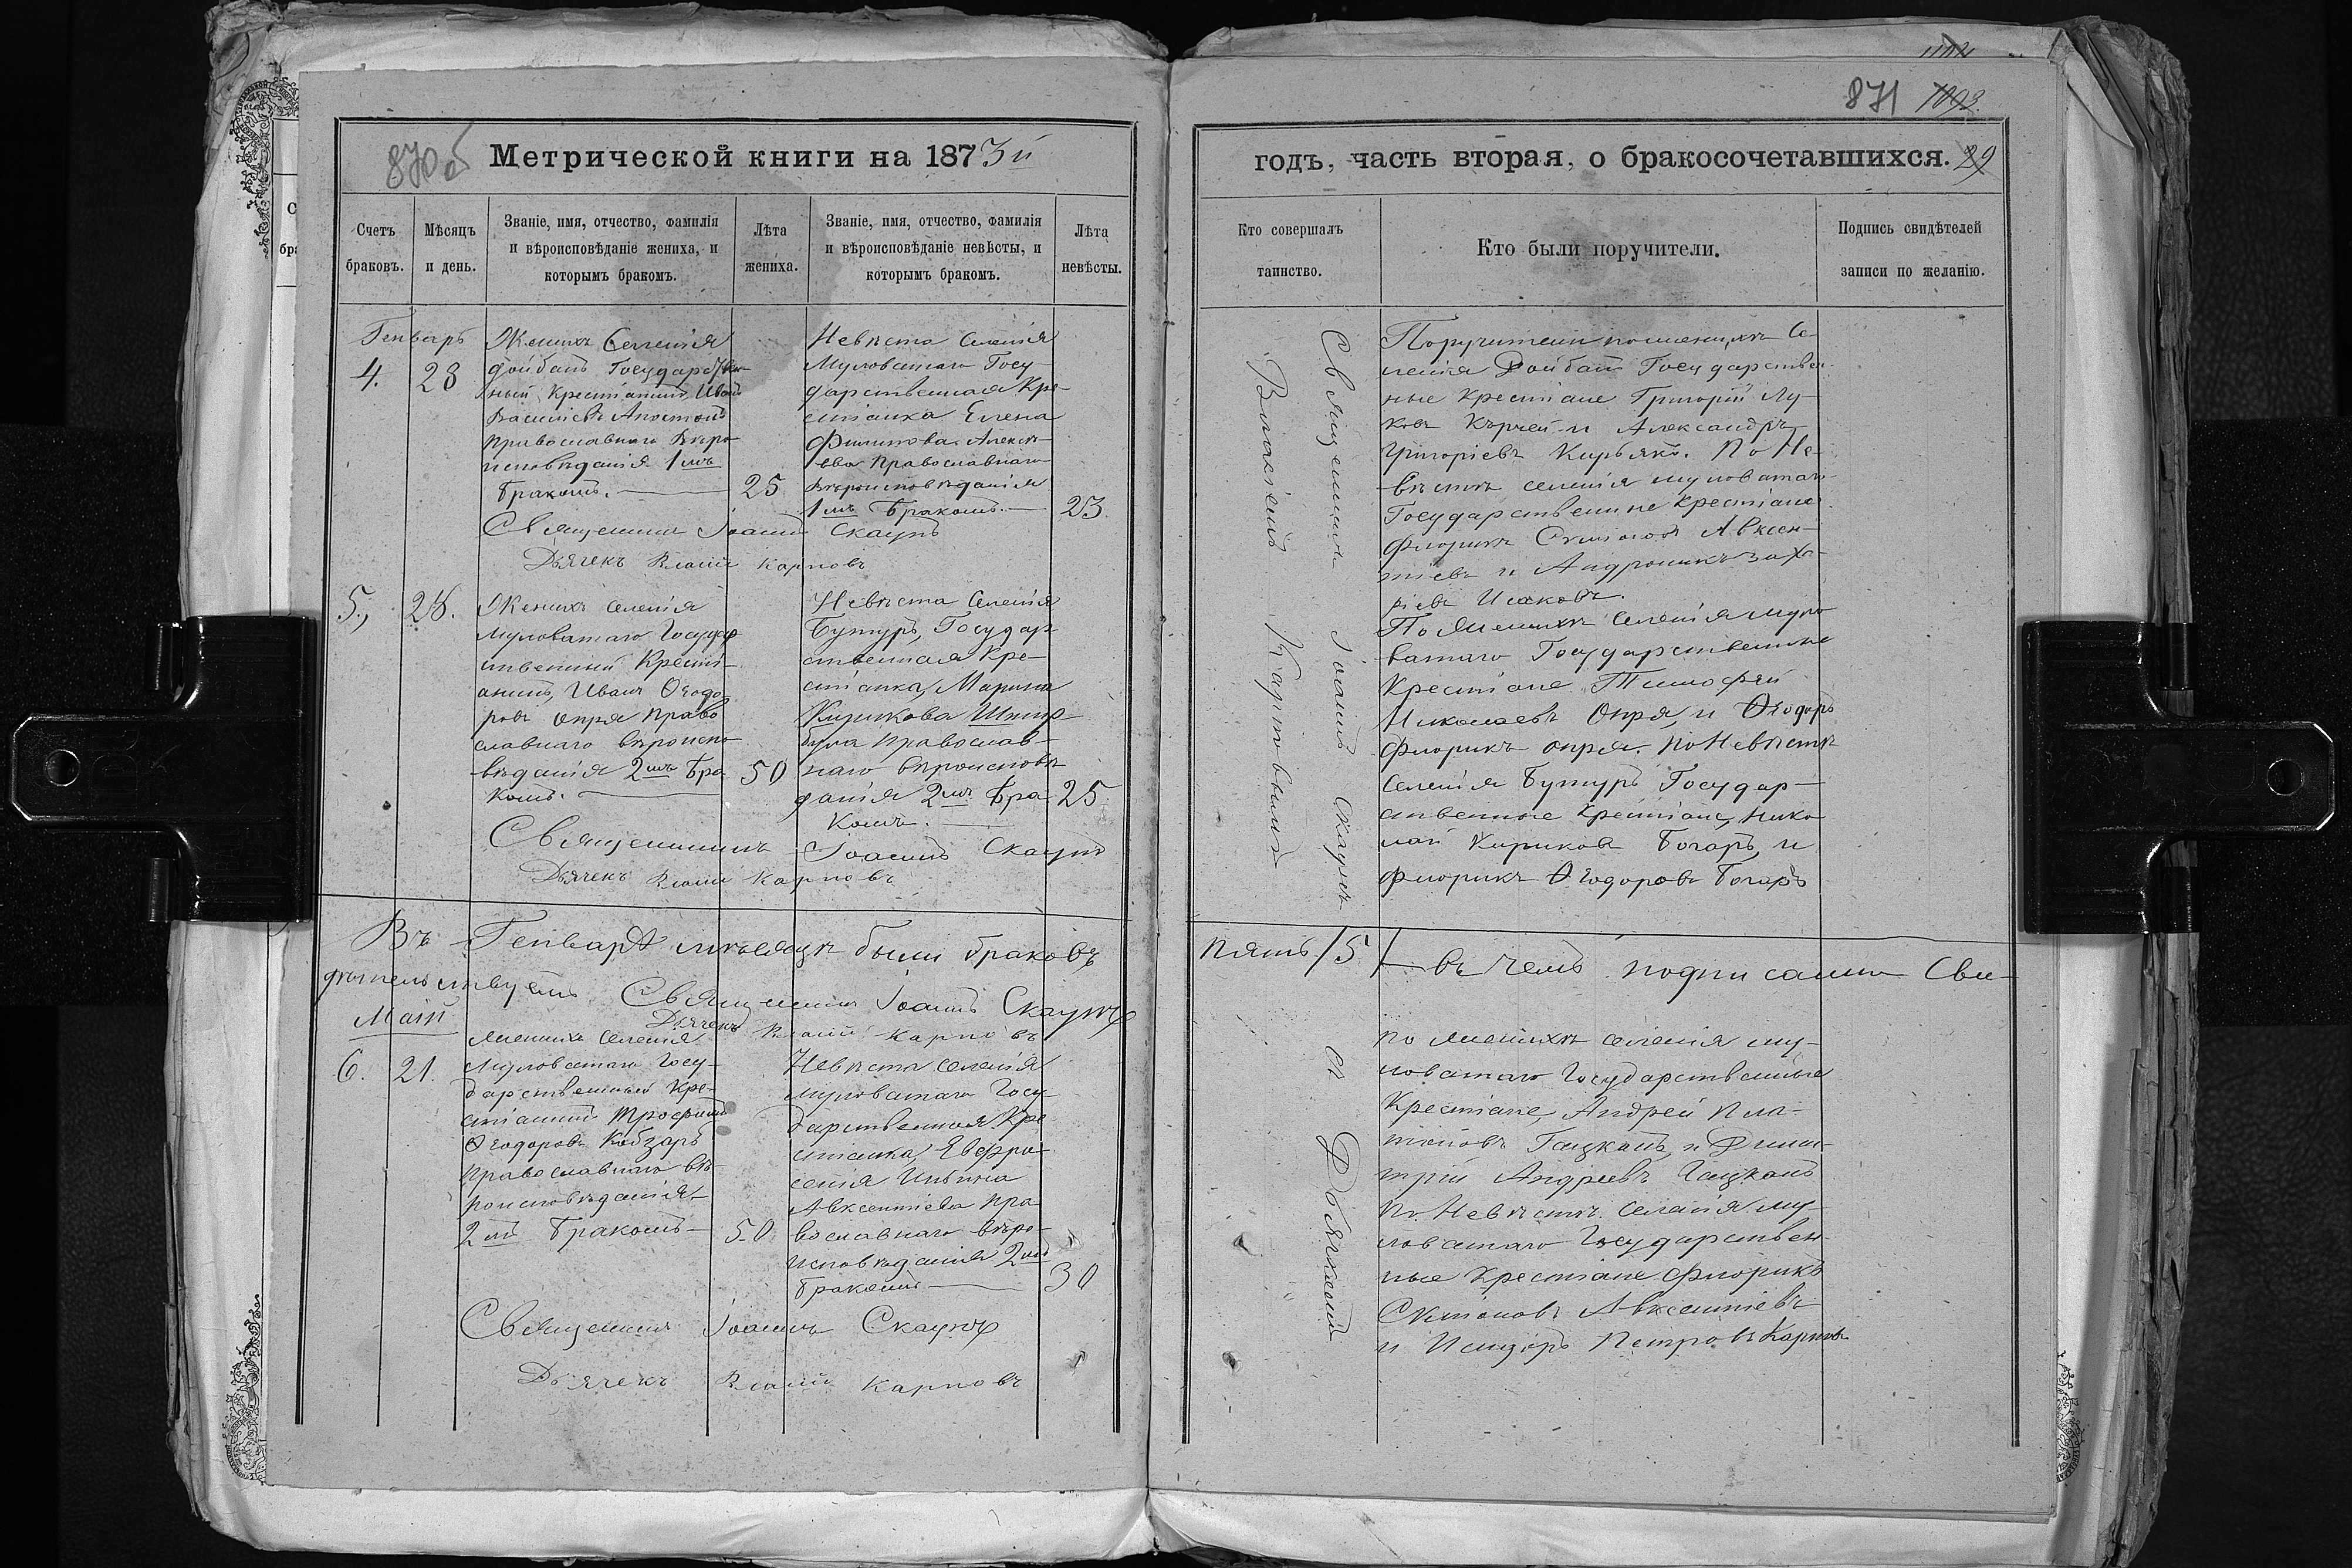 870об
Метрической книги на 1873й
Счетъ браковъ.
Мѣсяцъ и день.
Званіе, имя, отчество, фамилія
и вѣроисповѣданіе жениха, и
которымъ бракомъ.
Лѣта жениха.
Званіе, имя, отчество, фамилія
и вѣроисповѣданіе невѣсты, и
которымъ бракомъ.
Лѣта невѣсты.
Генваръ
4.
28
Женихъ Селенія
Дойбанъ Государствен-
ный Крестіанинъ Иванъ
Василіевъ Апостолъ
Православнаго Вѣро-
исповѣданія 1мъ
бракомъ.
25
Невѣста Селенія
Муловатаго Госу-
дарственная Кре-
стіанка Елена
Филипова Алексѣ-
ева Православнаго
Вѣроисповѣданія
1мъ Бракомъ.
23
Священникъ Іоаннъ Скаунъ
Дьячекъ Власій Карповъ
5.,
28.
Женихъ селенія
Муловатаго Государ
ственный Крестi-
анинъ, Иванъ Ѳеодо-
ровъ Опря Право
славнаго вѣроиспо
вѣданія 2мъ Бра
комъ.
50
Невѣста Селенія
Бутуръ, Государ
ственная Кре-
стіанка, Марина
Кирикова
Православ-
наго вѣроисповѣ
данія 2мъ Бра
комъ.
25
Священникъ Іоаннъ Скаунъ
Дьячекъ Власій Карповъ
Въ Генварѣ мѣсяцѣ были браковъ
дѣтельствуемъ Священникъ Іоаннъ Скаунъ
Дьячекъ Власій Карповъ
Маій
6.
21.
Женихъ Селенія
Муловатаго Госу-
дарственный Кре-
стіанинъ Трофимъ
Ѳеодоровъ Кобзарь
Православнаго вѣ-
роисповѣданія
2мъ Бракомъ
50
Невѣста селенія
Муловатаго Госу-
дарственная Кре
стіанка, Евфро-
сенія Ильина
Авксентіева Пра
вославнаго вѣро-
исповѣданія 2мъ
Бракомъ
30
Священникъ Іоаннъ Скаунъ
Дьячекъ Власій Карповъ
871 1093
годъ, часть вторая, о бракосочетавшихся. 29
Кто совершалъ таинство.
Кто были поручители.
Подпись свидѣтелей
записи по желанію.
Священникъ Іоаннъ Скаунъ съ Дьячкомъ
Власіемъ Карповымъ
Поручители по женихѣ Се-
ленія Дойбан Государствен-
ные Крестіане Григорій Лу-
Кѣрчей и Александръ
Григоріевъ Кирьяко. По Не-
вѣстѣ селенія муловатаго
Государственные Крестіане
Флорикъ Авксен-
тіевъ и Андроникъ Заха-
ріевъ Исаковъ.
По Женихѣ Селенія Муло
ватаго Государственные
Крестіане Тимофей
Николаевъ Опря, и Ѳеодоръ
Флорикъ опря. По Невѣстѣ
Селенія Бутуръ Государ-
ственные Крестіане, Нико
лай Кириковъ Богаръ, и
Флорикъ Ѳеодоровъ Богаръ
пять /5/ въ чемъ подписами Сви-
По женихѣ селенія му-
ловатаго Государственные
Крестіане, Андрей Пла-
тоновъ Гацканъ, и Дими-
трій Андреевъ Гацканъ
По Невѣстѣ Селенія му-
ловатаго Государствен-
ные Крестіане Флорикъ
Авксентіевъ
и Исидоръ Петровъ Карповъ